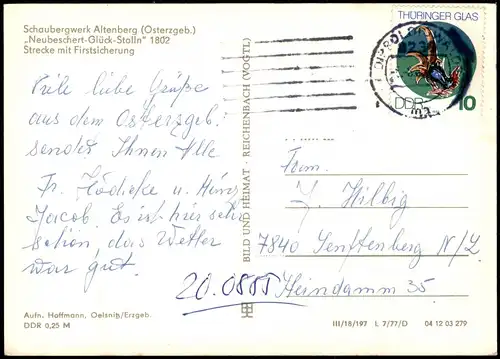 Schaubergwerk Altenberg (Osterzgeb.)
„Neubeschert-Glück-Stolln" 1802
Strecke mit Firstsicherung
Viele liebe Grüße
aus dem Osterzgeb.
sendet Ihnen Alle
Fr. Jödicke u. Heinz
Jacob. Es ist hier sehr
schön, das Wetter
war gut.
20.0885
Aufn. Hoffmann, Oelsnitz/Erzgeb.
DDR 0,25 M
BILD UND HEIMAT - REICHENBACH (VOGTL)
THÜRINGER GLAS
DDR
10
Fam.
J. Hilbig
7840 Senftenberg N/L
Heindamm 35
III/18/197 L 7/77/D 04 12 03 279